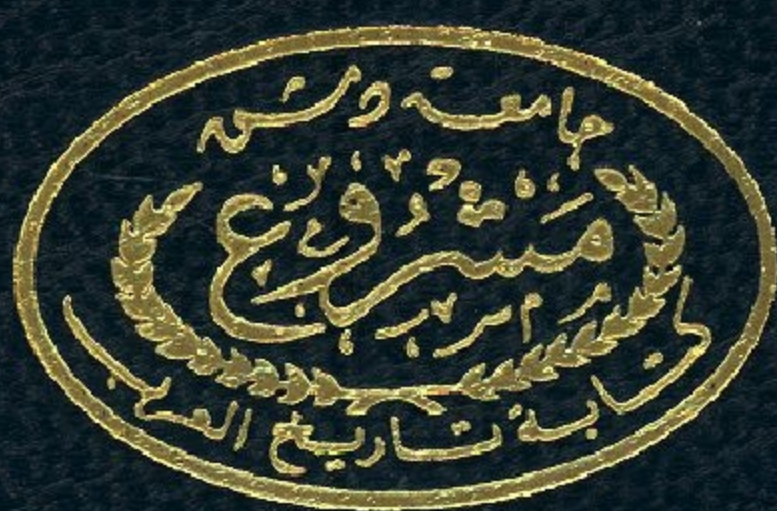 جامعة دمشق
مشروع
كتابة تاريخ العرب